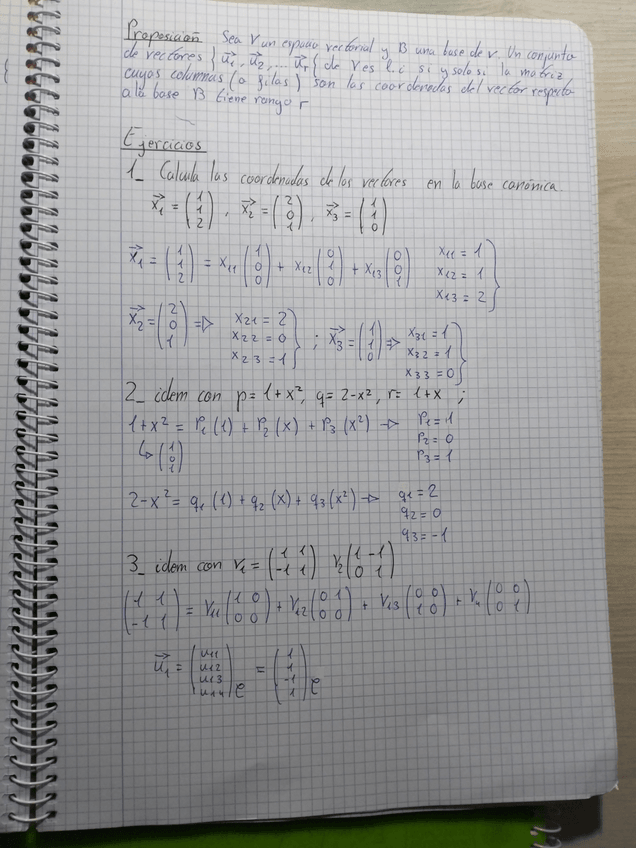 Proposición Sea V un espacio vectorial y B una base de V. Un conjunto
de vectores {u⃗1, u⃗2, ... u⃗r} de V es l.i si y solo si la matriz
cuyas columnas (o filas) son las coordenadas del vector respecto
a la base B tiene rango r
Ejercicios
1_ Calcula las coordenadas de los vectores en la base canónica
x⃗1 = (1 1 2), x⃗2 = (2 0 1), x⃗3 = (1 1 0)
x⃗1 = (1 1 2) = x11 (1 0 0) + x12 (0 1 0) + x13 (0 0 1) x11 = 1 x12 = 1 x13 = 2 }
x⃗2 = (2 0 1) => x21 = 2 x22 = 0 x23 = 1 } ; x⃗3 = (1 1 0) => x31 = 1 x32 = 1 x33 = 0 }
2_ idem con p = 1+x², q = 2-x², r = 1+x ;
1+x² = P1 (1) + P2 (x) + P3 (x²) → P1 = 1 P2 = 0 P3 = 1
↳ (1 0 1)
2-x² = q1 (1) + q2 (x) + q3 (x²) → q1 = 2 q2 = 0 q3 = -1
3_ idem con V1 = (1 1 -1 1) V2 (1 -1 0 1)
(1 1 -1 1) = V11 (1 0 0 0) + V12 (0 1 0 0) + V13 (0 0 1 0) + V4 (0 0 0 1)
u⃗1 = (u11 u12 u13 u14)C = (1 1 -1 1)C